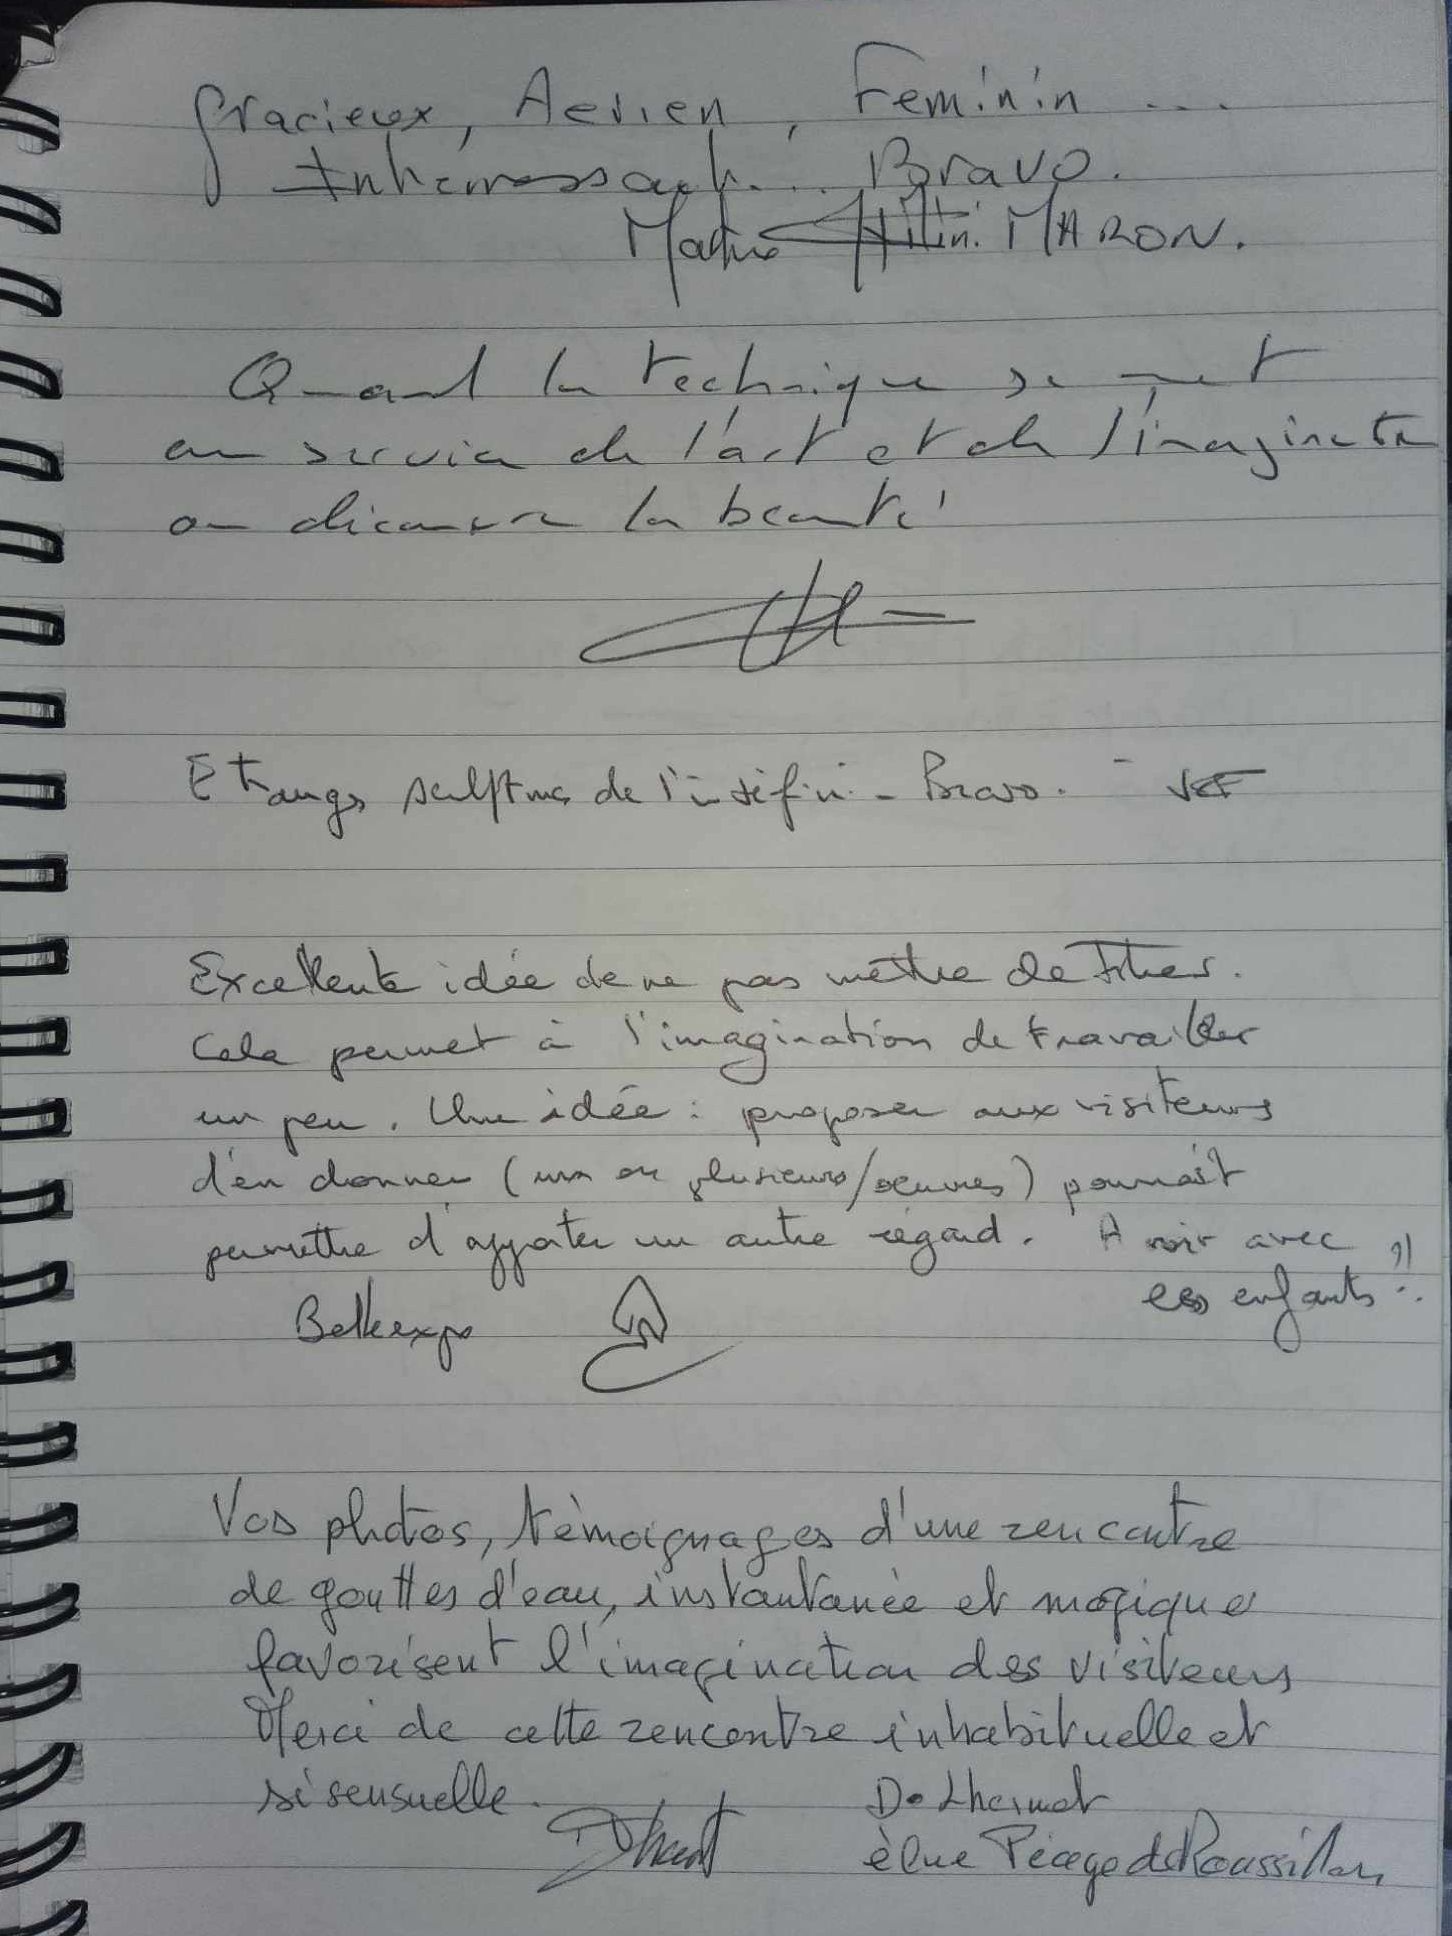 Gracieux, Aerien, Feminin ...
Intéressant... Bravo.
MARON.
Quand la technique se met
au service de l'art et de l'imagination
on découvre la beauté !
Etranges sculptures de l'indéfini - Bravo.
Excellente idée de ne pas mettre de titres.
Cela permet à l'imagination de travailler
un peu. Une idée : proposer aux visiteurs
d'en donner (un ou plusieurs/oeuvres) pourrait
permettre d'apporter un autre regard. A voir avec
les enfants ?!
Belle expo
Vos photos, témoignages d'une rencontre
de gouttes d'eau, instantanée et magique
favorisent l'imagination des visiteurs
Merci de cette rencontre inhabituelle et
si sensuelle.
D. Lhermet
élue Péage de Roussillon